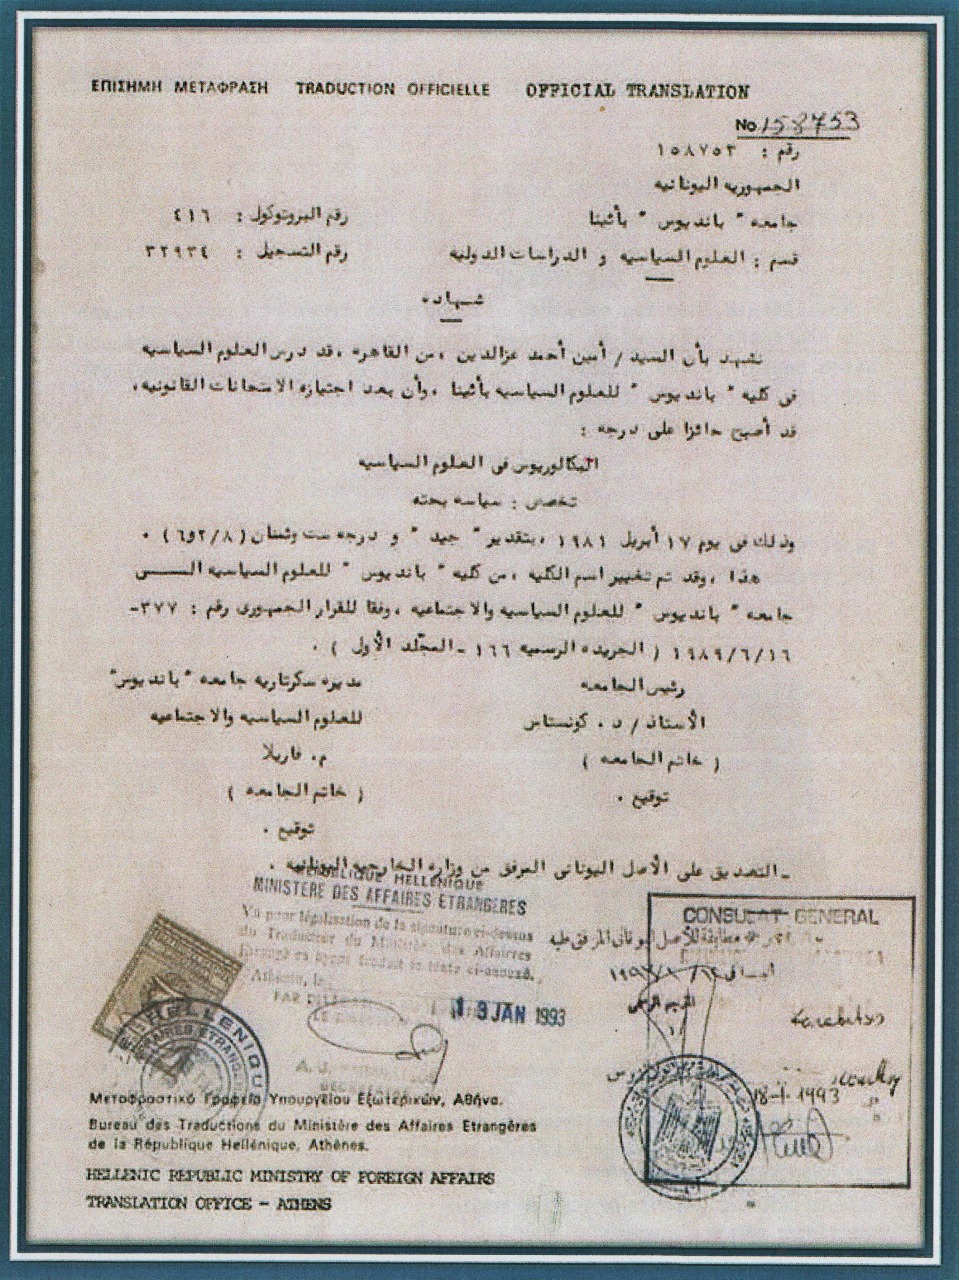 ΕΠΙΣΗΜΗ ΜΕΤΑΦΡΑΣΗ TRADUCTION OFFICIELLE OFFICIAL TRANSLATION
No 158753
رقم : ١٥٨٧٥٣
الجمهوريه اليونانيه
جامعه " بانديوس " بأثينا
رقم البروتوكول : ٤١٦
قسم : العلوم السياسيه و الدراسات الدوليه
رقم التسجيل : ٣٢٩٣٤
شهاده
نشهد بأن السيد / أمين أحمد عزالدين ، من القاهره ، قد درس العلوم السياسيه
فى كليه " بانديوس " للعلوم السياسيه بأثينا ، وأن بعد اجتيازه الامتحانات القانونيه ،
قد أصبح حائزا على درجه :
البكالوريوس فى العلوم السياسيه
تخصص : سياسه بحته
وذلك فى يوم ١٧ أبريل ١٩٨١ ، بتقدير " جيد " و درجه ست وثمنان ( ٢/٨ و٦ ) .
هذا ، وقد تم تغيير اسم الكليه ، من كليه " بانديوس " للعلوم السياسيه الـــى
جامعه " بانديوس " للعلوم السياسيه والاجتماعيه ، وفقا للقرار الجمهورى رقم : ٣٧٧-
١٩٨٩/٦/١٦ ( الجريده الرسميه ١٦٦ - المجلد الأول ) .
رئيس الجامعه
الأستاذ / د . كونستاس
( خاتم الجامعه )
توقيع .
مديره سكرتاريه جامعه " بانديوس "
للعلوم السياسيه والاجتماعيه
م. فاريلا
( خاتم الجامعه )
توقيع .
- التصديق على الأصل اليونانى المرفق من وزاره الخارجيه اليونانيه .
REPUBLIQUE HELLENIQUE
MINISTERE DES AFFAIRES ETRANGERES
Vu pour légalisation de la signature ci-dessus
du Traducteur du Ministère des Affaires
Athènes, le
13 JAN 1993
CONSULAT GENERAL
18-1-1993
HELLENIQUE
Μεταφραστικό Γραφείο Υπουργείου Εξωτερικών, Αθήνα.
Bureau des Traductions du Ministère des Affaires Etrangères
de la République Hellénique, Athènes.
HELLENIC REPUBLIC MINISTRY OF FOREIGN AFFAIRS
TRANSLATION OFFICE - ATHENS